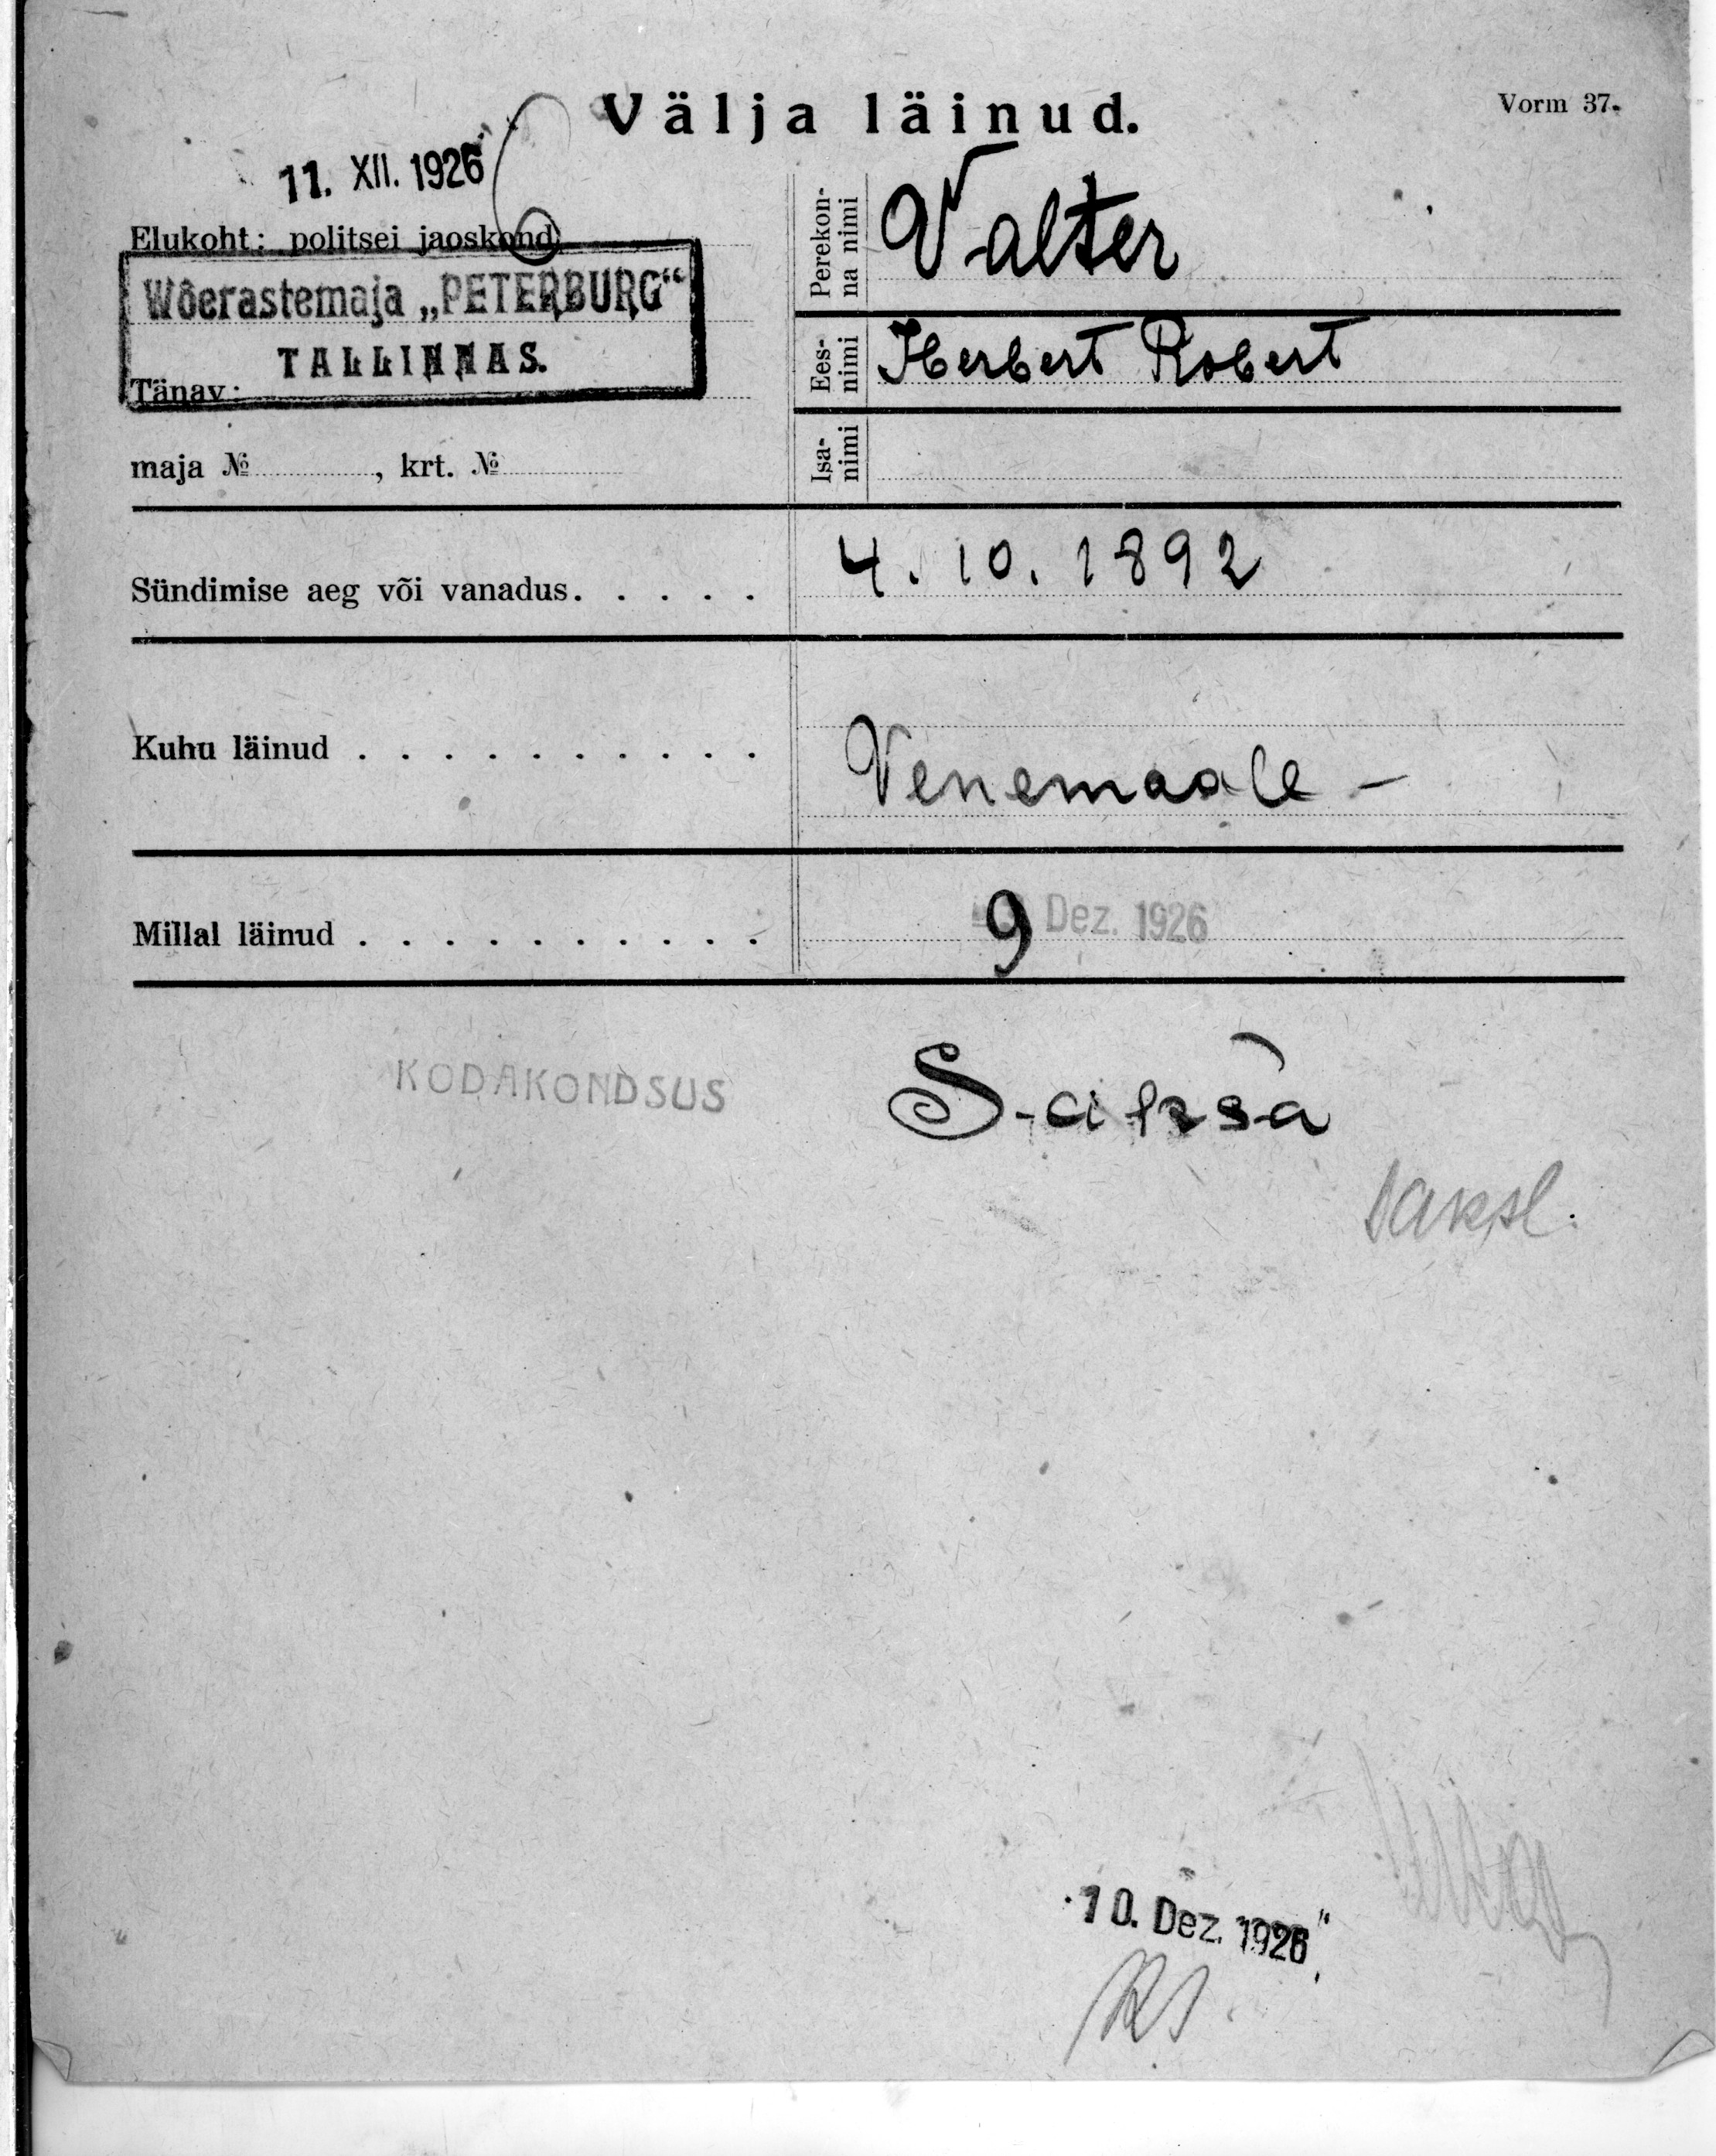 Välja läinud.
Vorm 37.
11. XII. 1926
Elukoht: politsei jaoskond
Wõerastemaja „PETERBURG“
TALLINNAS.
Tänav:
maja № , krt. №
Perekon-
na nimi
Valter
Ees-
nimi
Herbert Robert
Isa-
nimi
Sündimise aeg või vanadus. . . . .
4. 10. 1892
Kuhu läinud . . . . . . . . . .
Venemaale –
Millal läinud . . . . . . . . . .
9 Dez. 1926
KODAKONDSUS
Saksa
saksl.
10. Dez. 1926